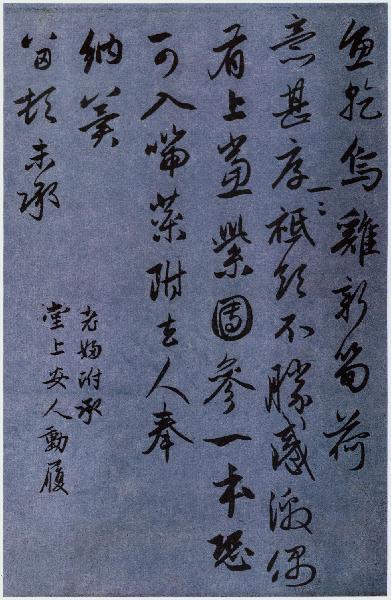 魚乾烏雞新筍荷
意甚厚一〻祗領不勝感激偶
有上黨紫團參一本恐
可入喘藥附去人奉
納冀
留頓未承
老婦附承
堂上安人動履